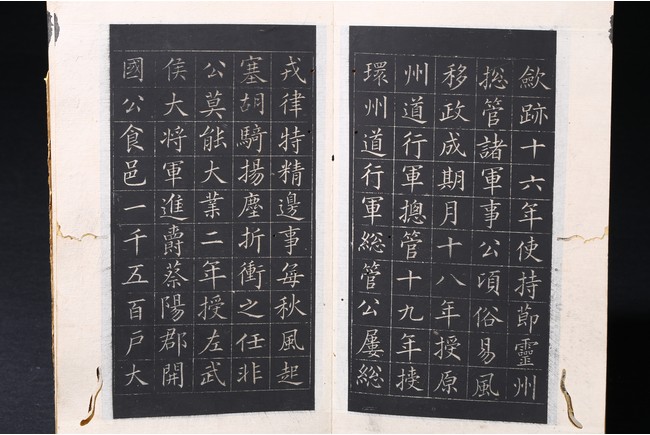 歛跡十六年使持莭靈州
捴管諸軍事公頃俗易風
移政成期月十八年授原
州道行軍摠管十九年授
環州道行軍総管公屢総
戎律特精邊事每秋風起
塞胡騎揚塵折衝之任非
公莫能大業二年授左武
侯大将軍進爵蔡陽郡開
國公食邑一千五百戸大